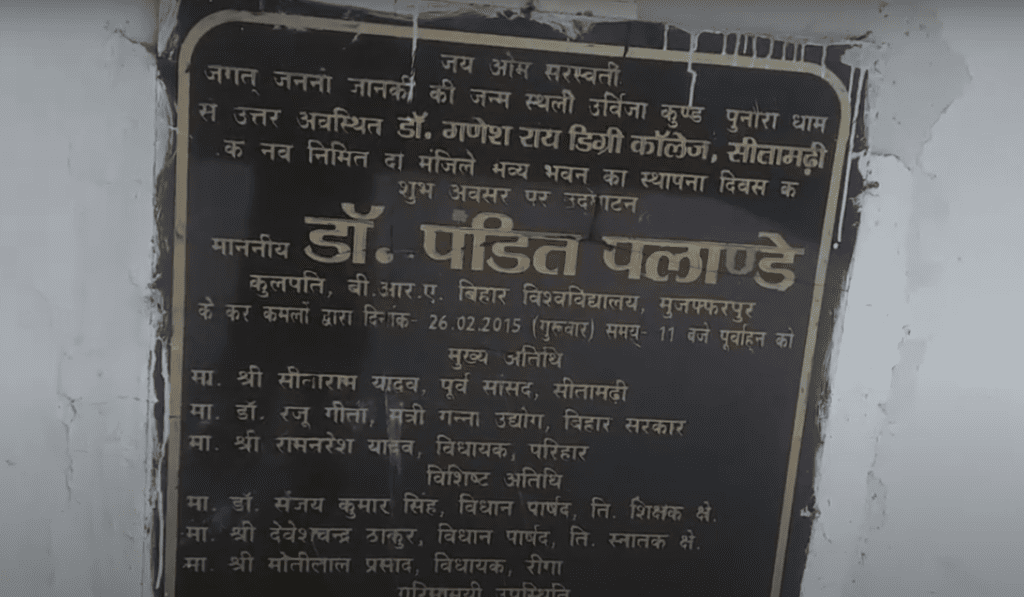 जय ओम सरस्वती
जगत् जननी जानकी की जन्म स्थली उर्विजा कुण्ड पुनौरा धाम
से उत्तर अवस्थित डॉ. गणेश राय डिग्री कॉलेज, सीतामढ़ी
के नव निर्मित दो मंजिले भव्य भवन का स्थापना दिवस के
शुभ अवसर पर उद्घाटन
माननीय डॉ. पंडित पलाण्डे
कुलपति, बी.आर.ए. बिहार विश्वविद्यालय, मुजफ्फरपुर
के कर कमलों द्वारा दिनांक- 26.02.2015 (गुरूवार) समय- 11 बजे पूर्वाहन को
मुख्य अतिथि
मा. श्री सीताराम यादव, पूर्व सांसद, सीतामढ़ी
मा. डॉ. रंजू गीता, मंत्री गन्ना उद्योग, बिहार सरकार
मा. श्री रामनरेश यादव, विधायक, परिहार
विशिष्ट अतिथि
मा. डॉ. संजय कुमार सिंह, विधान पार्षद, ति. शिक्षक क्षे.
मा. श्री देवेशचन्द्र ठाकुर, विधान पार्षद, ति. स्नातक क्षे.
मा. श्री मोतीलाल प्रसाद, विधायक, रीगा
गरिमामयी उपस्थिति